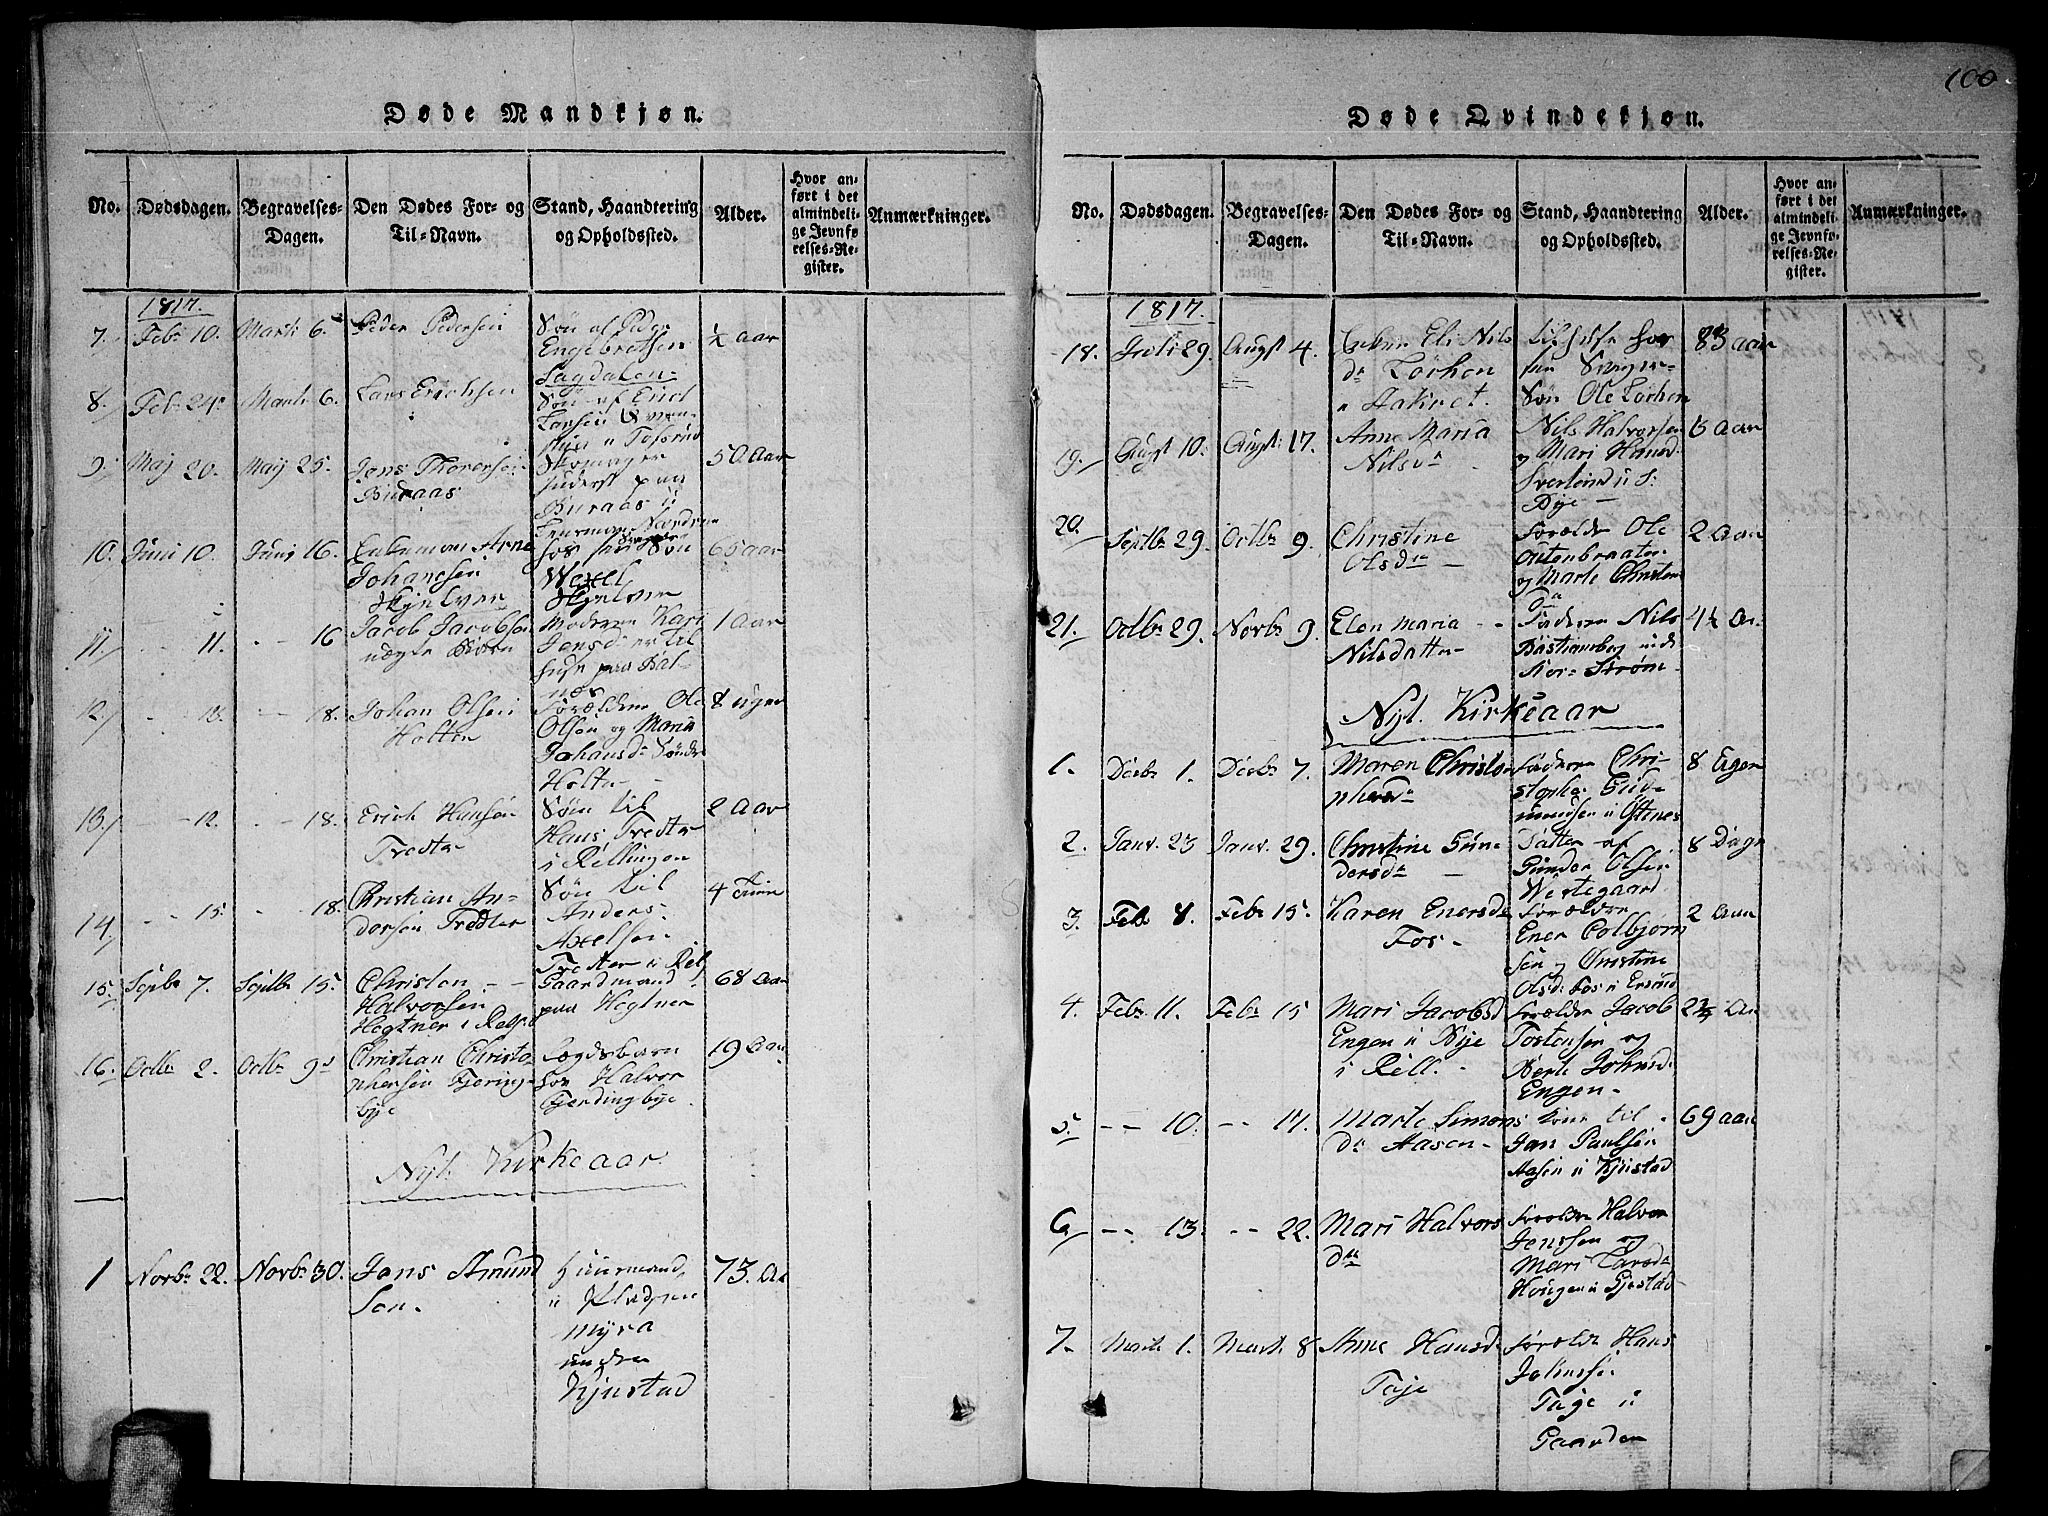 100
Døde Mandkjøn.
No. Dødsdagen. Begravelses-Dagen. Den Dødes For- og Til-Navn. Stand, Haandtering og Opholdssted. Alder. Hvor anført i det almindelige Jevnførelses-Register. Anmærkninger.
1817.
7. Febr 10. Marti 6. Peder Pedersen
Søn af Peder
Engebretsen
Sagdalen
½ aar
8. Febr 24. Marti 6. Lars Erichsen
Søn af Erich
Larsen
9. Maj 20. Maÿ 25. Jens
Buraas
paa
Buraas
50 Aar
10. Juni 10. Junj 16. Enkemand Arne
Johansen
Skjelver
hos sin Søn
Wexel
Skjelver
65 aar
11. - - 11. - - 16 Jacob Jacobsen
uægte Barn
Moderen Kari
Jensdr er til
huse paa
1 Aar
12. - - 12. - - 18. Johan Olsen
Holter
Forældre Ole
Olsen og Maria
Johansdr Søndre
Holter
8 uger
13. - - 12. - - 18. Erich Hansen
Tredter
Søn til
Hans Tredter
i Rellingen
2 Aar
14. - - 15. - - 18. Christian Andersen Tredter
Søn til
Anders
Axelsen
Tredter i Rel
4
15. Septbr 7. Septbr 15. Christen - -
Halvorsen
Hegtner i
Gaardmand
paa Hegtner
68 Aar
16. Octbr 2. Octbr 9. Christian Christophersen
bye
Lægdsbarn
hos Halvor
Fjerdingbye.
19 Aar
Nyt Kirkeaar
1 Novbr 22. Novbr 30. Jens Amund
sen.
Huusmand
i Pladsen
Myra
under
Kjustad
73. Aar
Døde Qvindekjøn.
No. Dødsdagen. Begravelses-Dagen. Den Dødes For- og Til-Navn. Stand, Haandtering og Opholdssted. Alder. Hvor anført i det almindelige Jevnførelses-Register. Anmærkninger.
1817.
18. Juli 29. Augst 4. Enken Eli Nils
dr Lørhen
til huse hos
sin
Søn Ole Lørhen
83 aar
19. Augst 10. Augst 17. Anne Maria
Nilsdr
Nils Halvorsen
og Mari Hansd
6 Aar
20. Septbr 29. Octbr 9. Christine
Olsdr
Forældre Ole
Østenbraaten
og Marte Christen
Dr
2 Aar
21. Octbr 29. Novbr 9. Elen Maria
Nilsdatter
Faderen Nils
4½ Aar
Nyt Kirkeaar
1. Decbr 1. Decbr 7. Maren Christo
phersdr
Faderen Chri
stopher Gud
mundsen i
8 Uger
2. Janv. 23 Janv. 29. Christine Gun
dersdr
Datter af
Gunder Olsen
Westegaard
8 Dage
3. Feb 8. Febr 15. Karen Enersdr
Fos
Forældre
Ener Colbjørn
sen og Christine
Olsd: Fos i
2 Aar
4. Febr 11. Febr 15 Mari Jacobsd
Engen i Bye
i Rell.
Forældre Jacob
Tostensen og
Engen
5. - - 10. - - 17. Marte Simons
dr Aasen
Kone til
Jan Paulsen
Aasen i Kjustad
69 aar
6 - - 13. - - 22. Mari Halvors
dr
Forældre Halvor
Jenssen og
Mari Larsdr
Haugen i
7. Marti 1. Marti 8 Anne Hansdr
Taje
Forældre Hans
Johnssen
Taje i
Gaarden